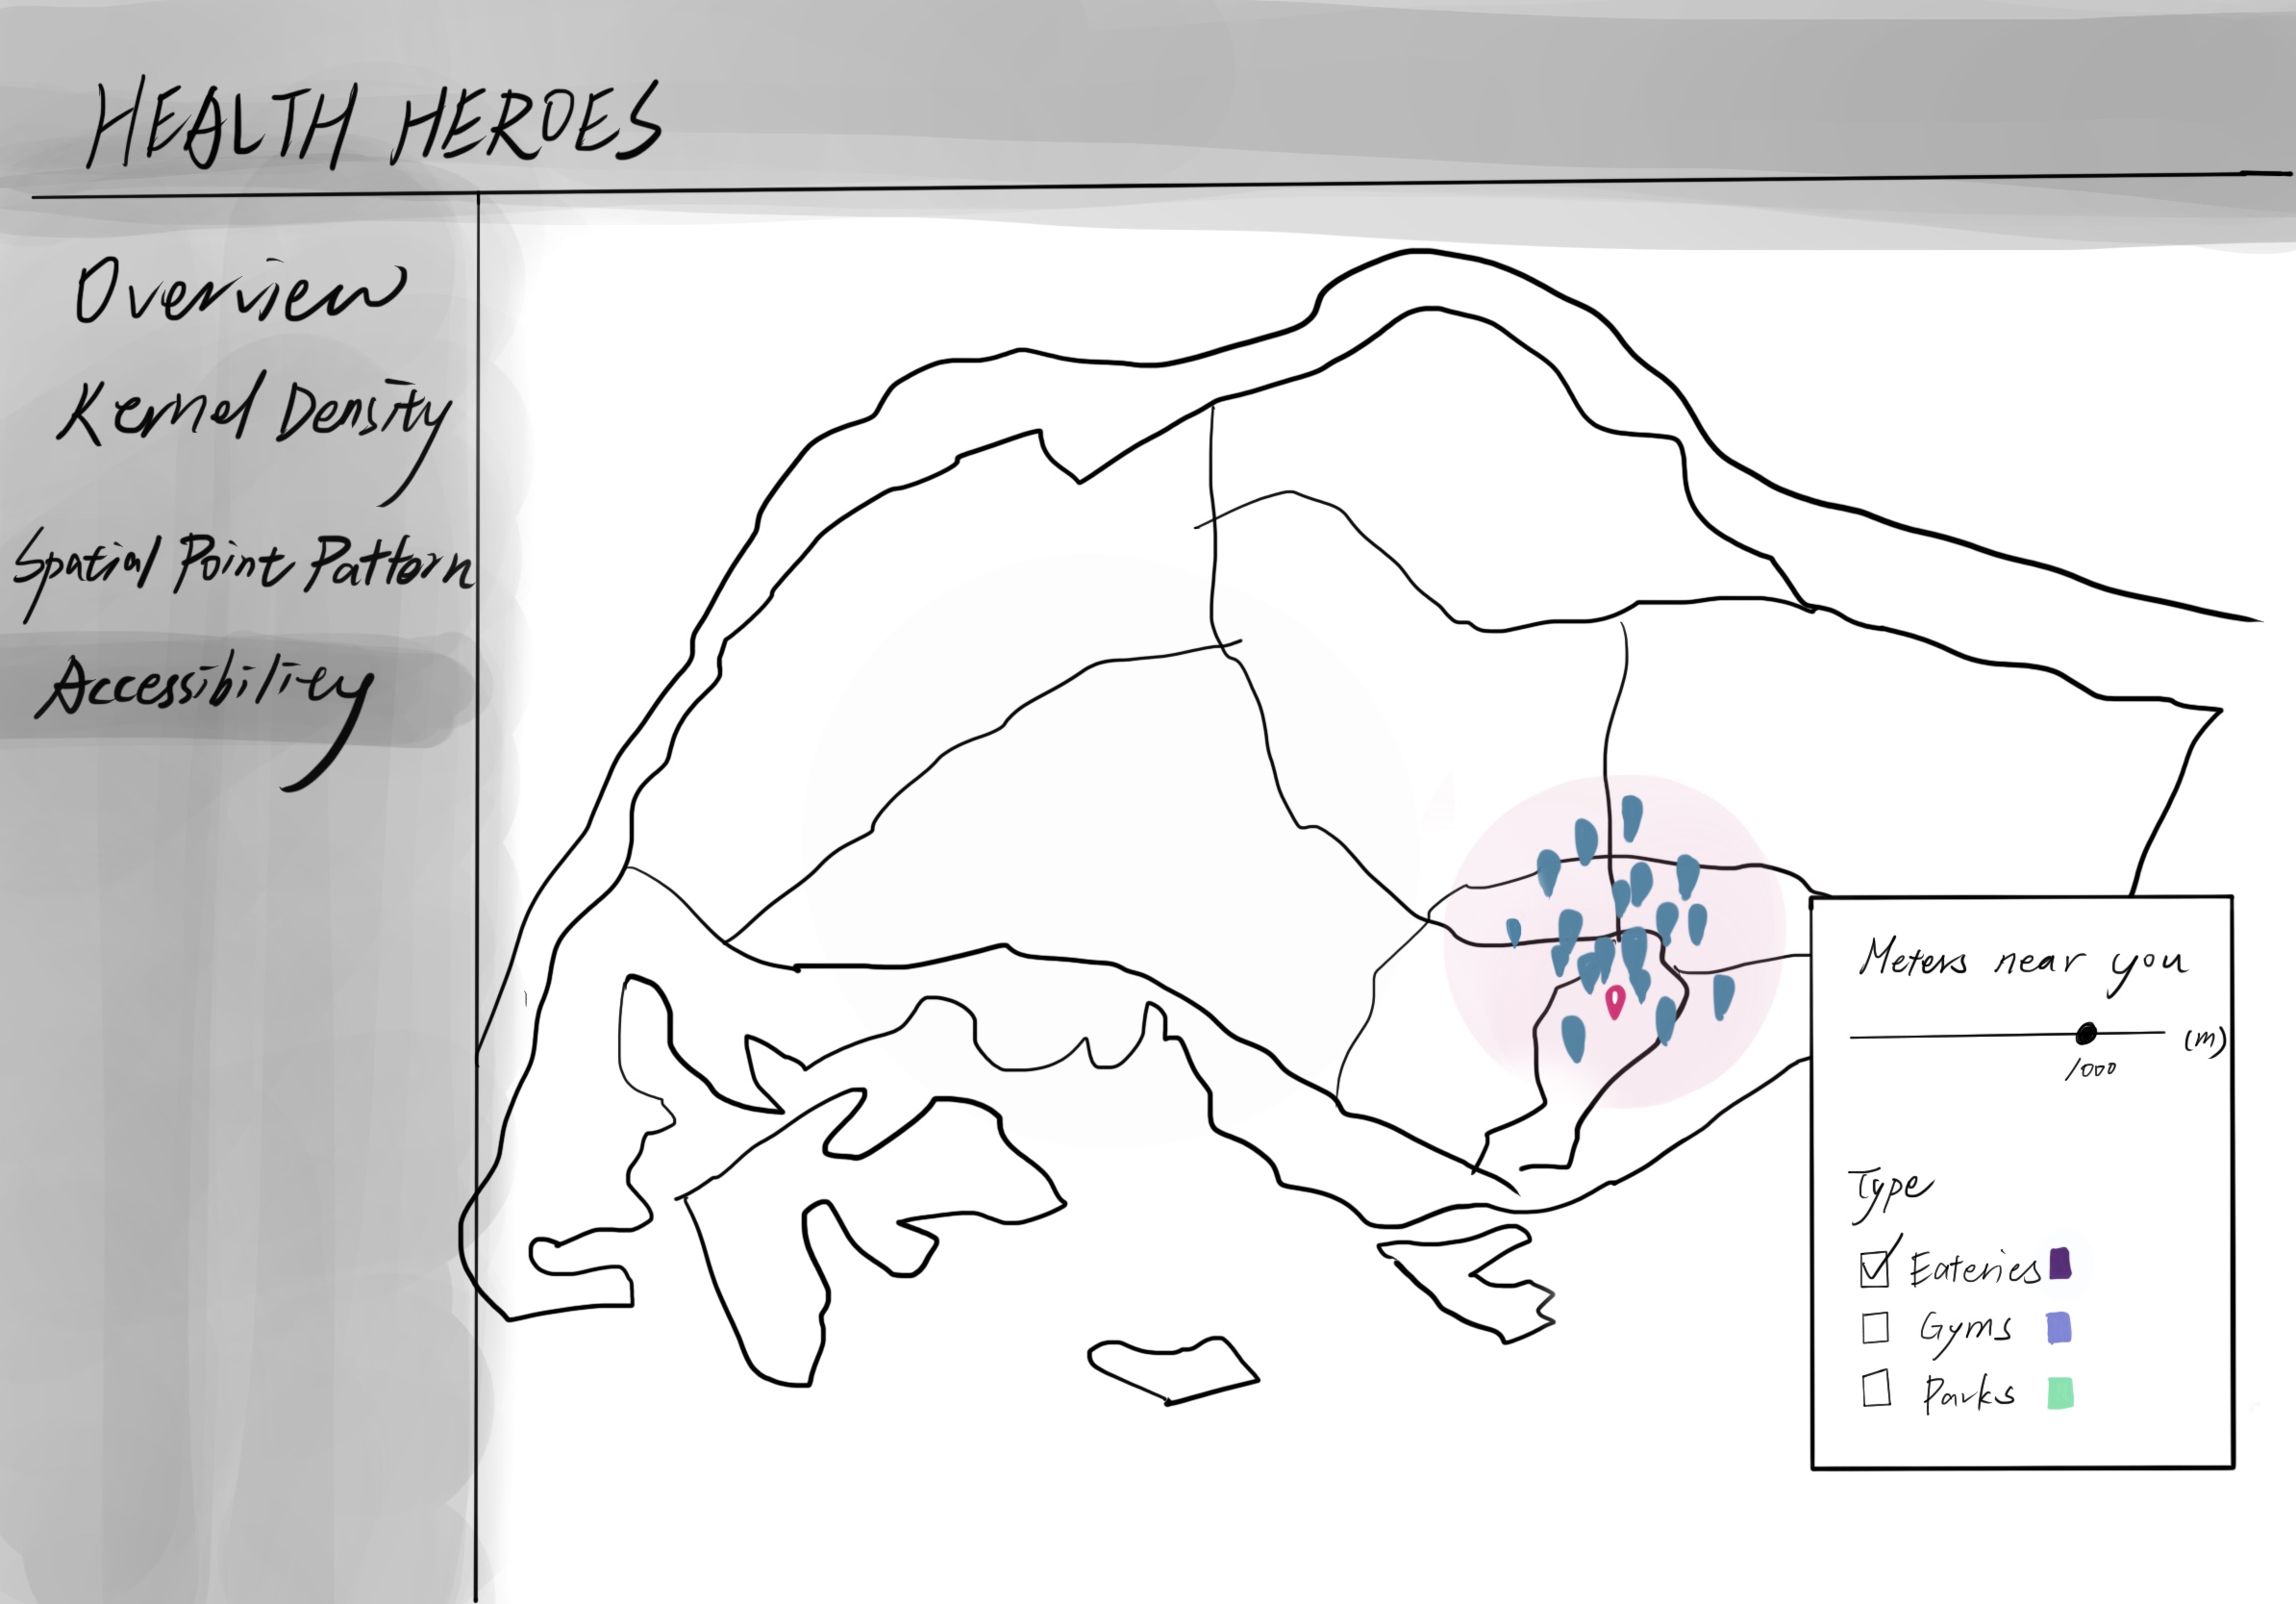 HEALTH HEROES
Overview
Kernel Density
Spatial Point Pattern
Accessibility
Meters near you
(m)
1000
Type
Eateries
Gyms
Parks